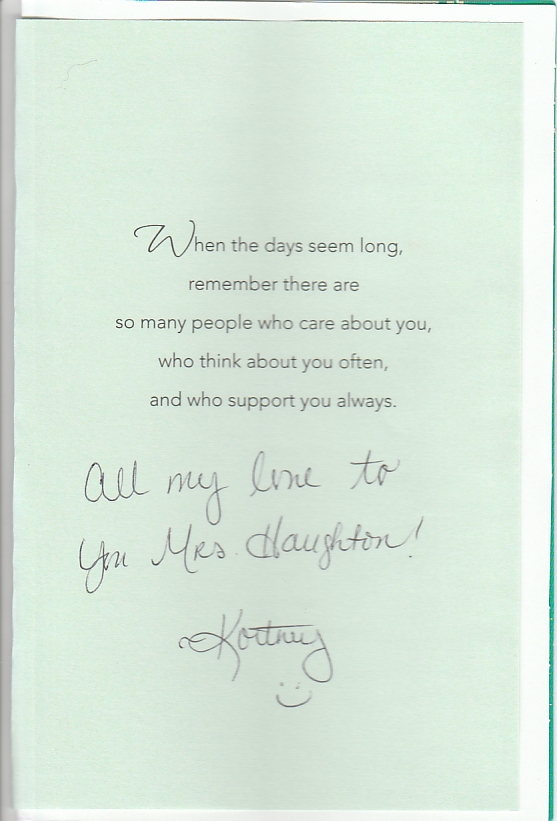 When the days seem long,
remember there are
so many people who care about you,
who think about you often,
and who support you always.
All my love to
you Mrs. Haughton!
Kortney